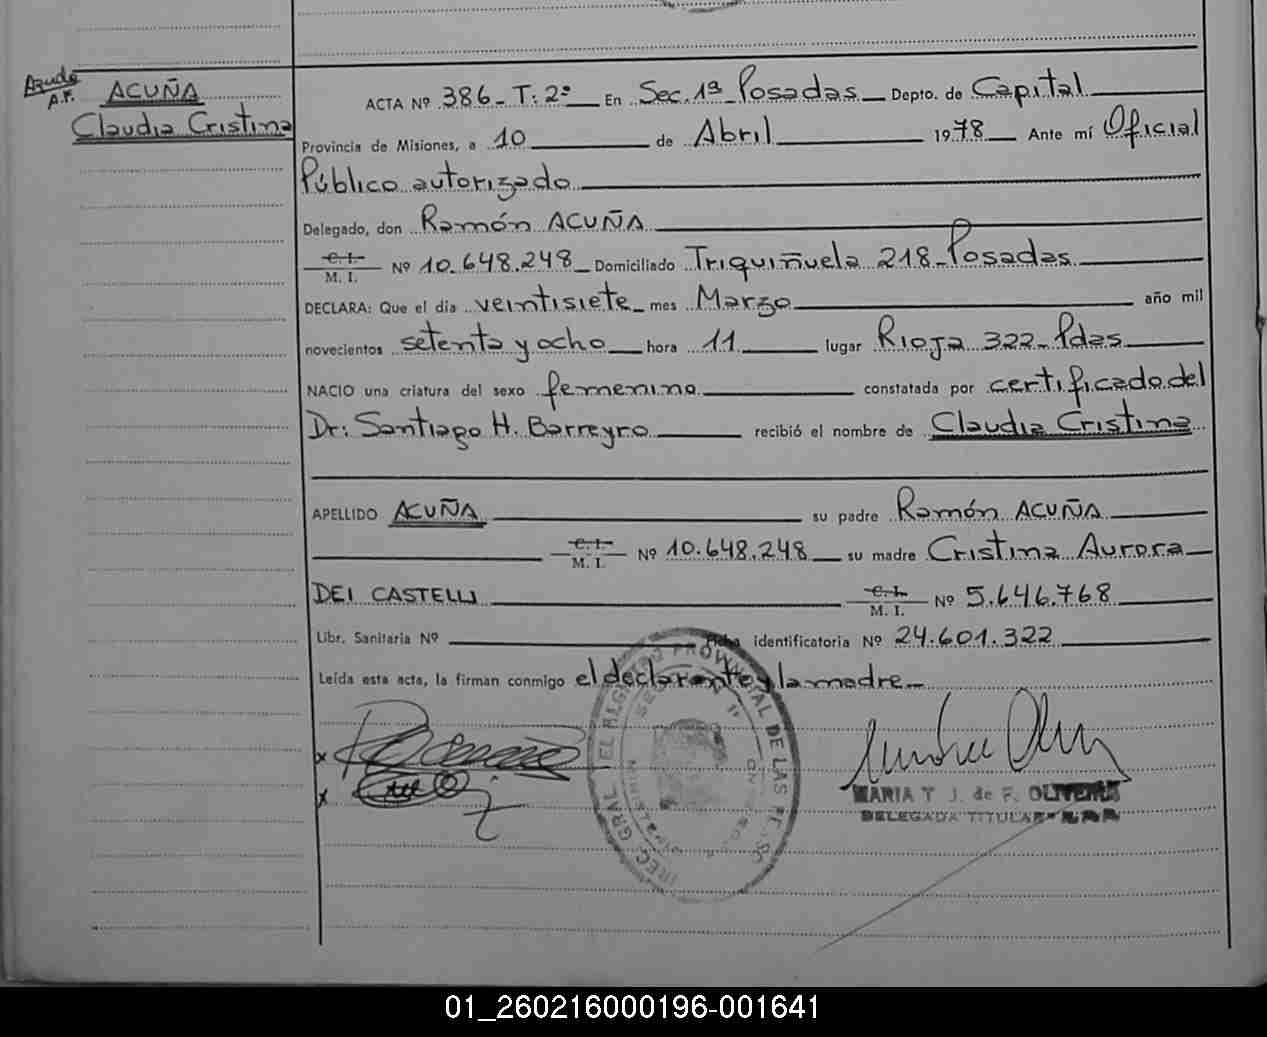 ACUÑA
Claudia Cristina
ACTA Nº 386 - T: 2º En Sec. 1ª Posadas Depto. de Capital
Provincia de Misiones, a 10 de Abril 1978 Ante mí Oficial
Público autorizado
Delegado, don Ramón ACUÑA
C. I.
M. I. Nº 10.648.248 Domiciliado Triquiñuela 218 - Posadas
DECLARA: Que el día veintisiete mes Marzo año mil
novecientos setenta y ocho hora 11 lugar Rioja 322 - Pdas
NACIO una criatura del sexo femenino constatada por certificado del
Dr: Santiago H. Barreyro recibió el nombre de Claudia Cristina
APELLIDO ACUÑA su padre Ramón ACUÑA
C. I.
M. I. Nº 10.648.248 su madre Cristina Aurora
DEI CASTELLI C. I.
M. I. Nº 5.646.768
Libr. Sanitaria Nº Ficha identificatoria Nº 24.601.322
Leída esta acta, la firman conmigo el declarante y la madre
MARIA T J. de F. OLIVEIRA
DELEGADA TITULAR
01_260216000196-001641